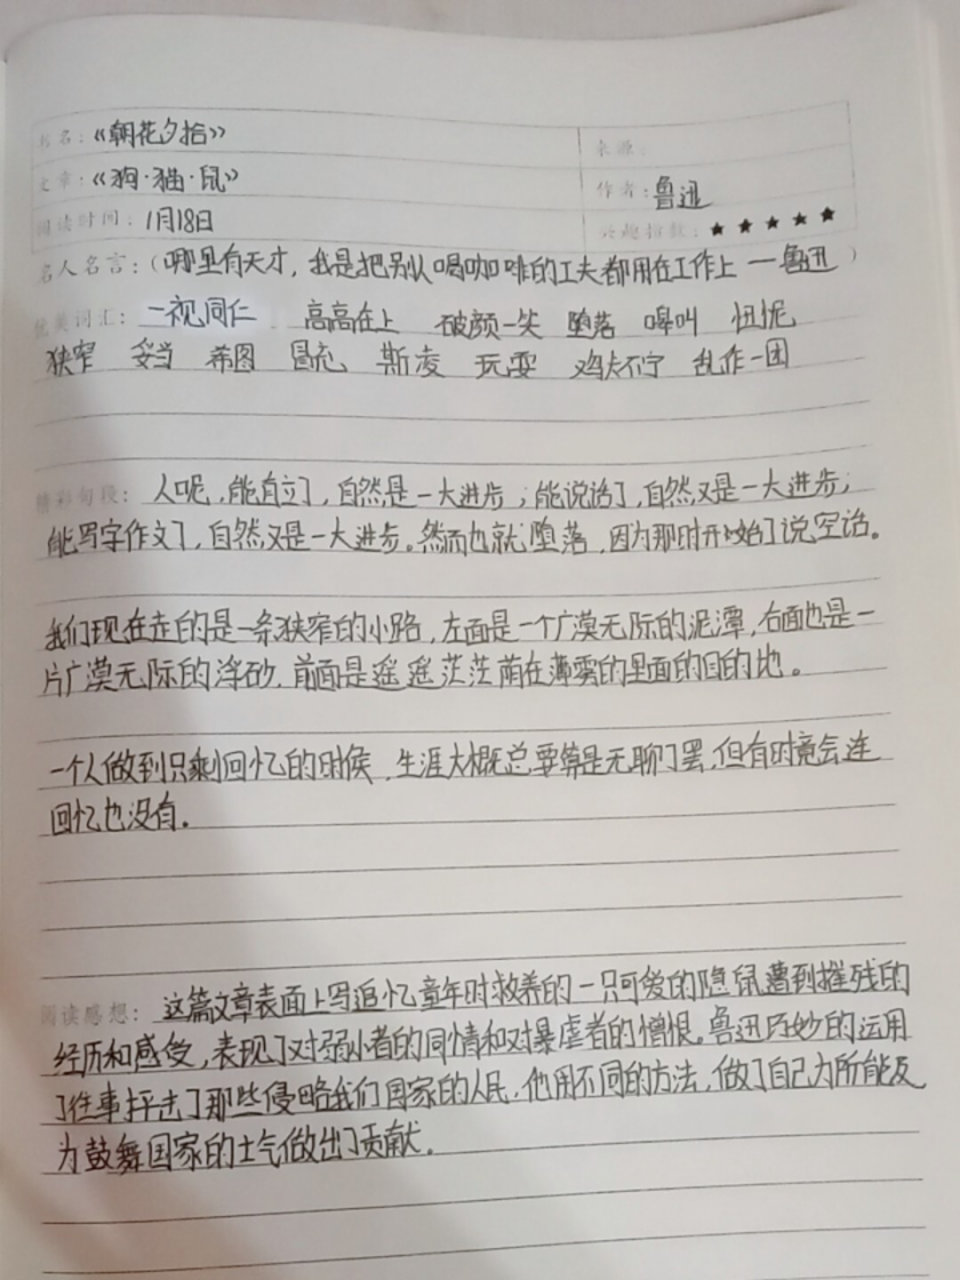 书名：《朝花夕拾》 来源：
文章：《狗·猫·鼠》 作者：鲁迅
阅读时间：1月18日 兴趣指数：★★★★★
名人名言：（哪里有天才，我是把别人喝咖啡的工夫都用在工作上 — 鲁迅）
优美词汇：一视同仁 高高在上 破颜一笑 堕落 嗥叫 忸怩
狭窄 妥当 希图 冒充 斯凌 玩耍 鸡犬不宁 乱作一团
精彩句段：人呢，能自立了，自然是一大进步；能说话了，自然又是一大进步；
能写字作文了，自然又是一大进步。然而也就堕落，因为那时开始了说空话。
我们现在走的是一条狭窄的小路，左面是一个广漠无际的泥潭，右面也是一
片广漠无际的浮砂，前面是遥遥茫茫荫在薄雾的里面的目的地。
一个人做到只剩回忆的时候，生涯大概总要算是无聊了罢，但有时竟会连
回忆也没有。
阅读感想：这篇文章表面上写追忆童年时救养的一只可爱的隐鼠遭到摧残的
经历和感受，表现了对弱小者的同情和对暴虐者的憎恨。鲁迅巧妙的运用
了往事抨击了那些侵略我们国家的人民，他用不同的方法，做了自己力所能及
为鼓舞国家的士气做出了贡献。